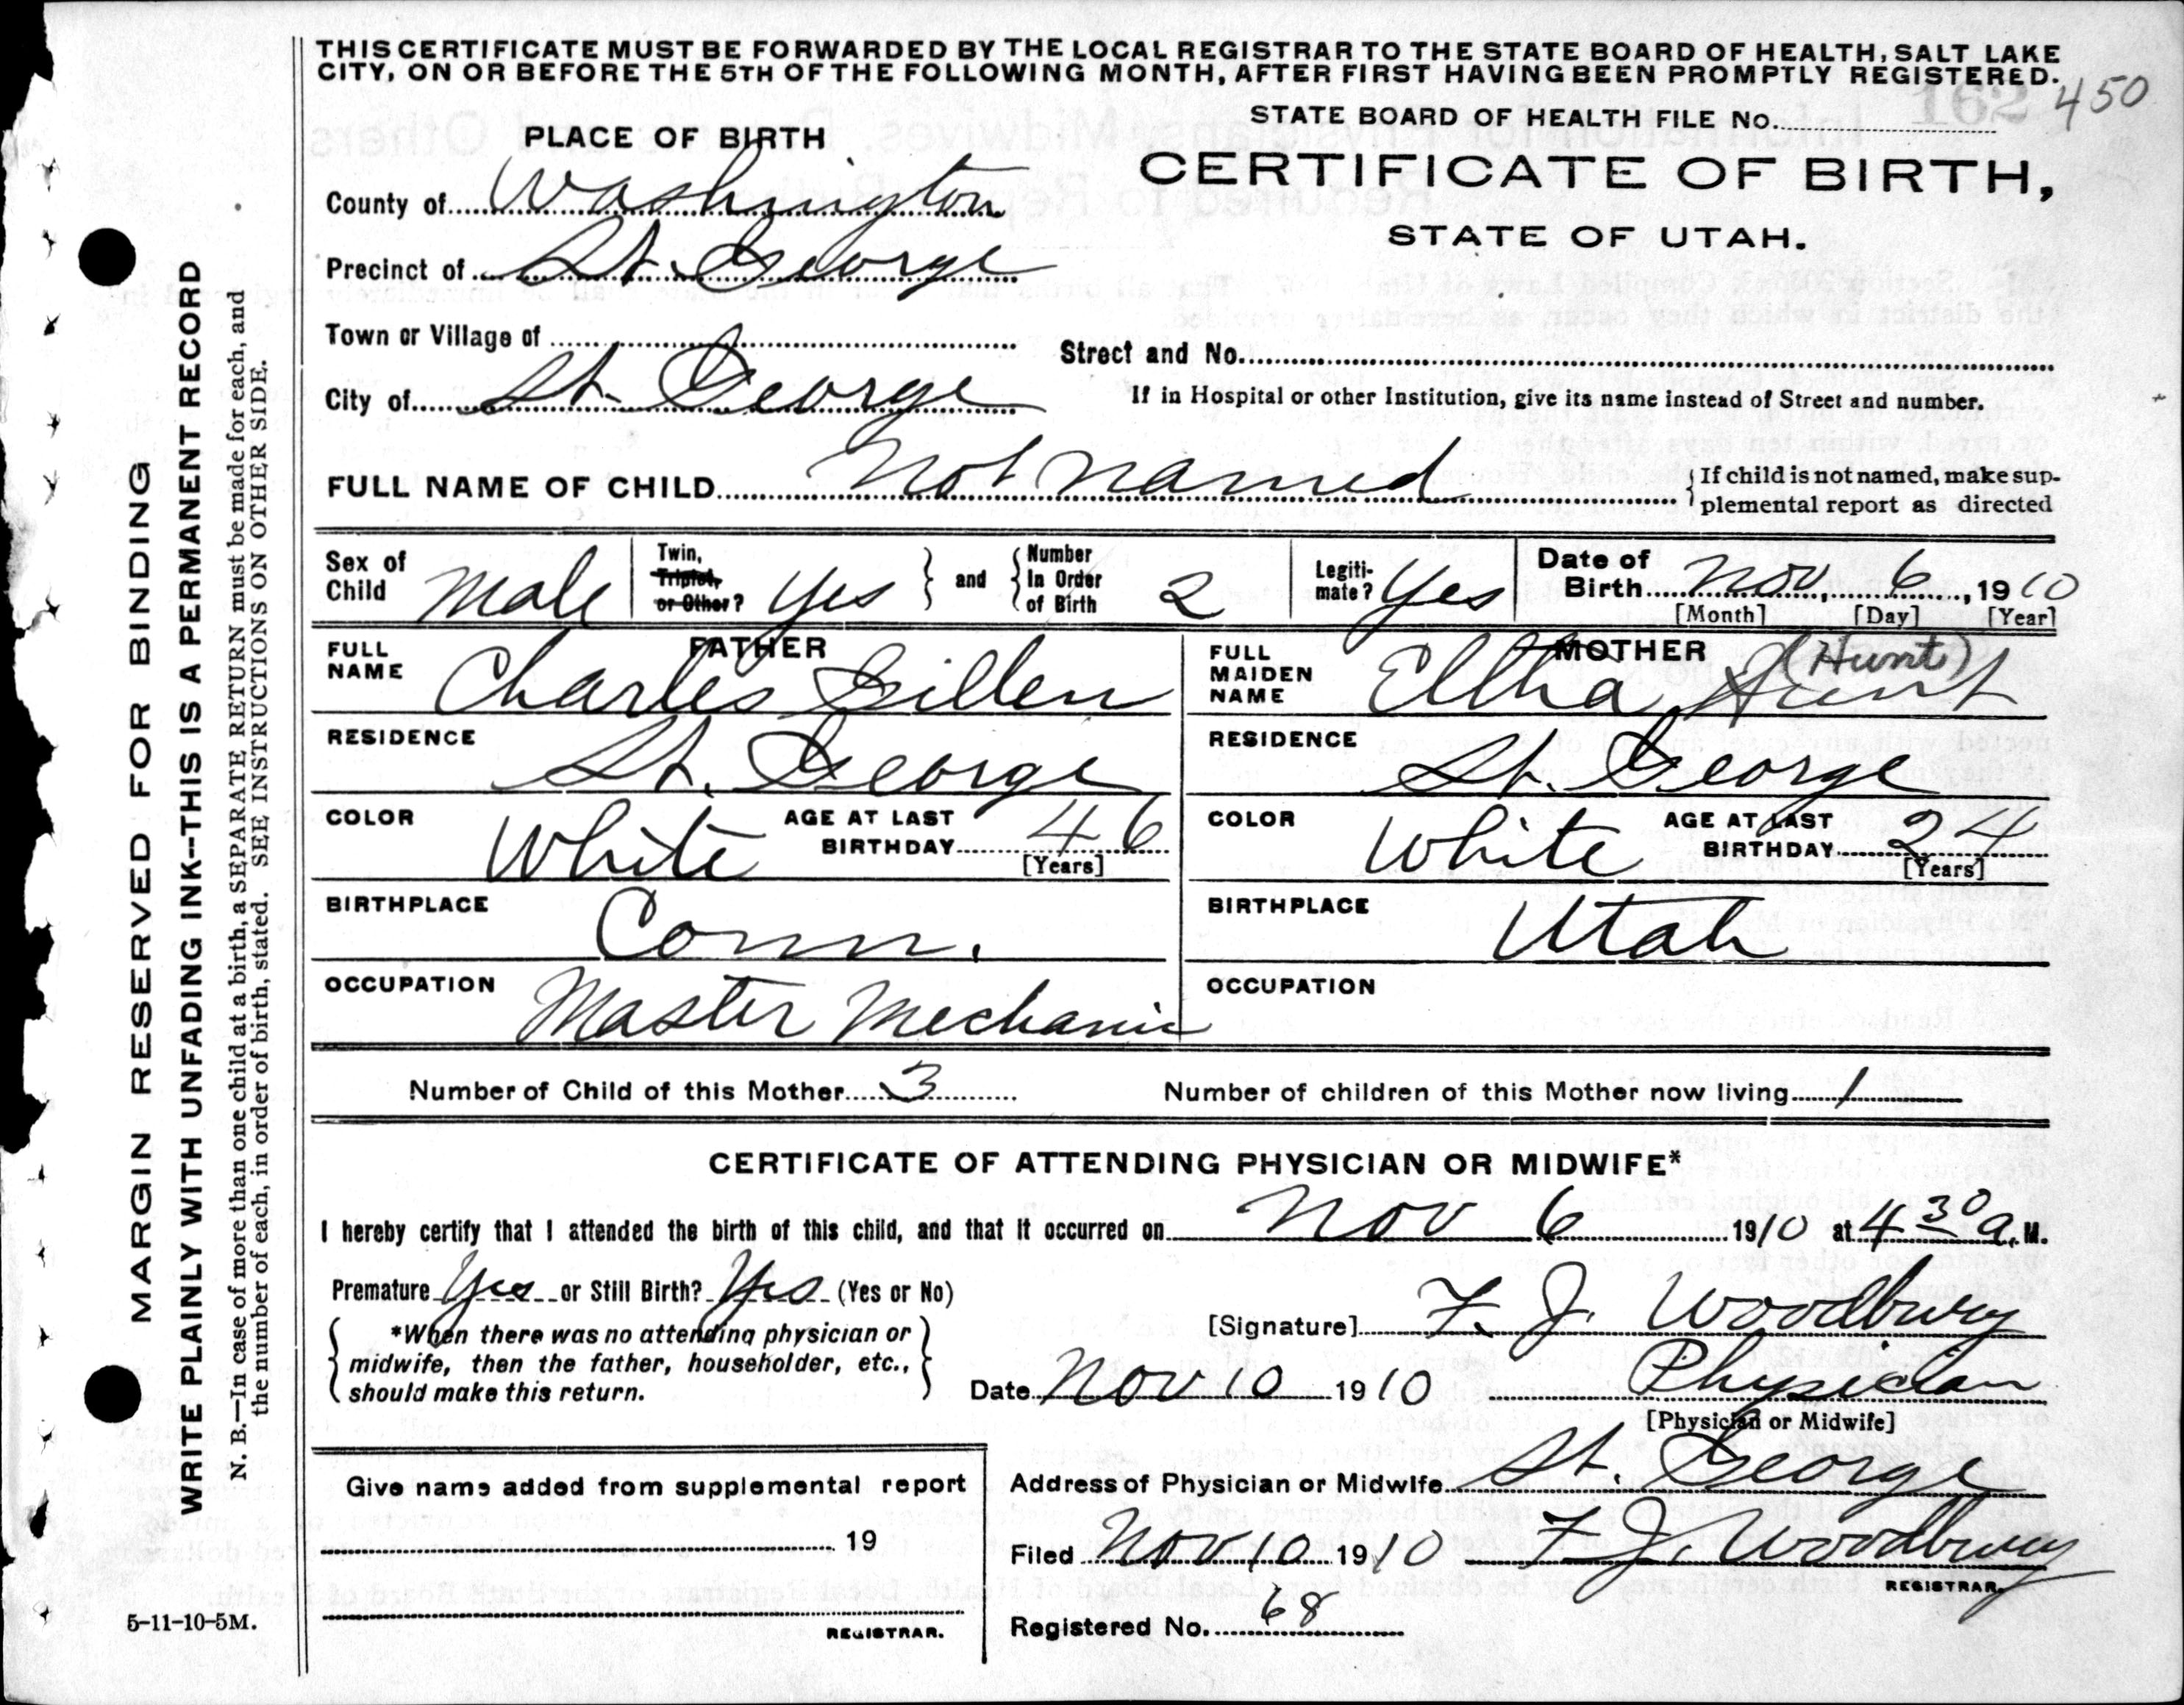 THIS CERTIFICATE MUST BE FORWARDED BY THE LOCAL REGISTRAR TO THE STATE BOARD OF HEALTH, SALT LAKE
CITY, ON OR BEFORE THE 5TH OF THE FOLLOWING MONTH, AFTER FIRST HAVING BEEN PROMPTLY REGISTERED.
STATE BOARD OF HEALTH FILE No. 162 450
PLACE OF BIRTH
CERTIFICATE OF BIRTH,
STATE OF UTAH.
County of Washington
Precinct of St. George
Town or Village of
Street and No.
City of St. George
If in Hospital or other Institution, give its name instead of Street and number.
FULL NAME OF CHILD Not named
If child is not named, make sup-
plemental report as directed
Sex of Child Male
Twin, Triplet, or Other? Yes
and
Number In Order of Birth 2
Legiti-mate? Yes
Date of Birth Nov, 6, 1910
[Month] [Day] [Year]
FATHER
FULL NAME Charles Gillen
RESIDENCE St. George
COLOR White
AGE AT LAST BIRTHDAY 46
[Years]
BIRTHPLACE Conn.
OCCUPATION Master Mechanic
MOTHER
FULL MAIDEN NAME Eltha Hunt (Hunt)
RESIDENCE St. George
COLOR White
AGE AT LAST BIRTHDAY 24
[Years]
BIRTHPLACE Utah
OCCUPATION
Number of Child of this Mother 3
Number of children of this Mother now living 1
CERTIFICATE OF ATTENDING PHYSICIAN OR MIDWIFE*
I hereby certify that I attended the birth of this child, and that it occurred on Nov 6 1910 at 4 30 a. M.
Premature Yes or Still Birth? Yes (Yes or No)
*When there was no attending physician or
midwife, then the father, householder, etc.,
should make this return.
[Signature] F. J. Woodbury
Date Nov 10 1910 Physician
[Physician or Midwife]
Give name added from supplemental report
19
REGISTRAR.
Address of Physician or Midwife St. George
Filed Nov 10 1910 F. J. Woodbury
REGISTRAR.
Registered No. 68
5-11-10-5M.
MARGIN RESERVED FOR BINDING
WRITE PLAINLY WITH UNFADING INK--THIS IS A PERMANENT RECORD
N. B.—In case of more than one child at a birth, a SEPARATE RETURN must be made for each, and
the number of each, in order of birth, stated. SEE INSTRUCTIONS ON OTHER SIDE.